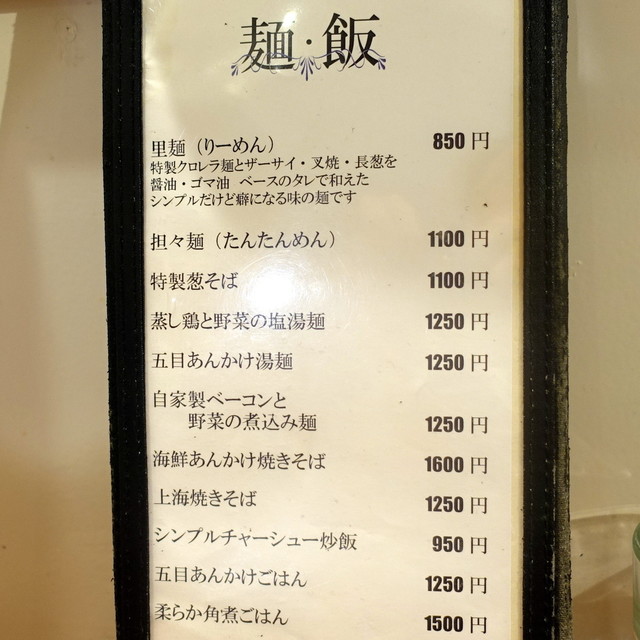 麺・飯
里麺（りーめん） 850 円
特製クロレラ麺とザーサイ・叉焼・長葱を
醤油・ゴマ油 ベースのタレで和えた
シンプルだけど癖になる味の麺です
担々麺（たんたんめん） 1100 円
特製葱そば 1100 円
蒸し鶏と野菜の塩湯麺 1250 円
五目あんかけ湯麺 1250 円
自家製ベーコンと
野菜の煮込み麺 1250 円
海鮮あんかけ焼きそば 1600 円
上海焼きそば 1250 円
シンプルチャーシュー炒飯 950 円
五目あんかけごはん 1250 円
柔らか角煮ごはん 1500 円